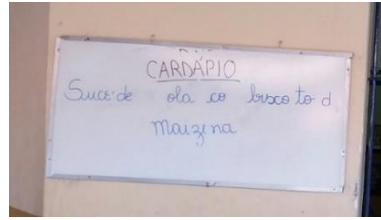 CARDÁPIO
Suco de ola co biscoto d
maizena